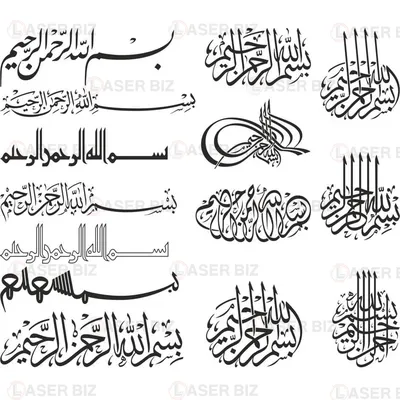 بسم الله الرحمن الرحيم
بسم الله الرحمن الرحيم
بسم الله الرحمن الرحيم
بسم الله الرحمن الرحيم
بسم الله الرحمن الرحيم
بِسْمِ اللهِ الرَّحْمٰنِ الرَّحِيمِ
بسم الله الرحمن الرحيم
بسم الله الرحمن الرحيم
بسم الله الرحمن الرحيم
بسم الله الرحمن الرحيم
بسم الله الرحمن الرحيم
بسم الله الرحمن الرحيم
بسم الله الرحمن الرحيم
LASER BIZ